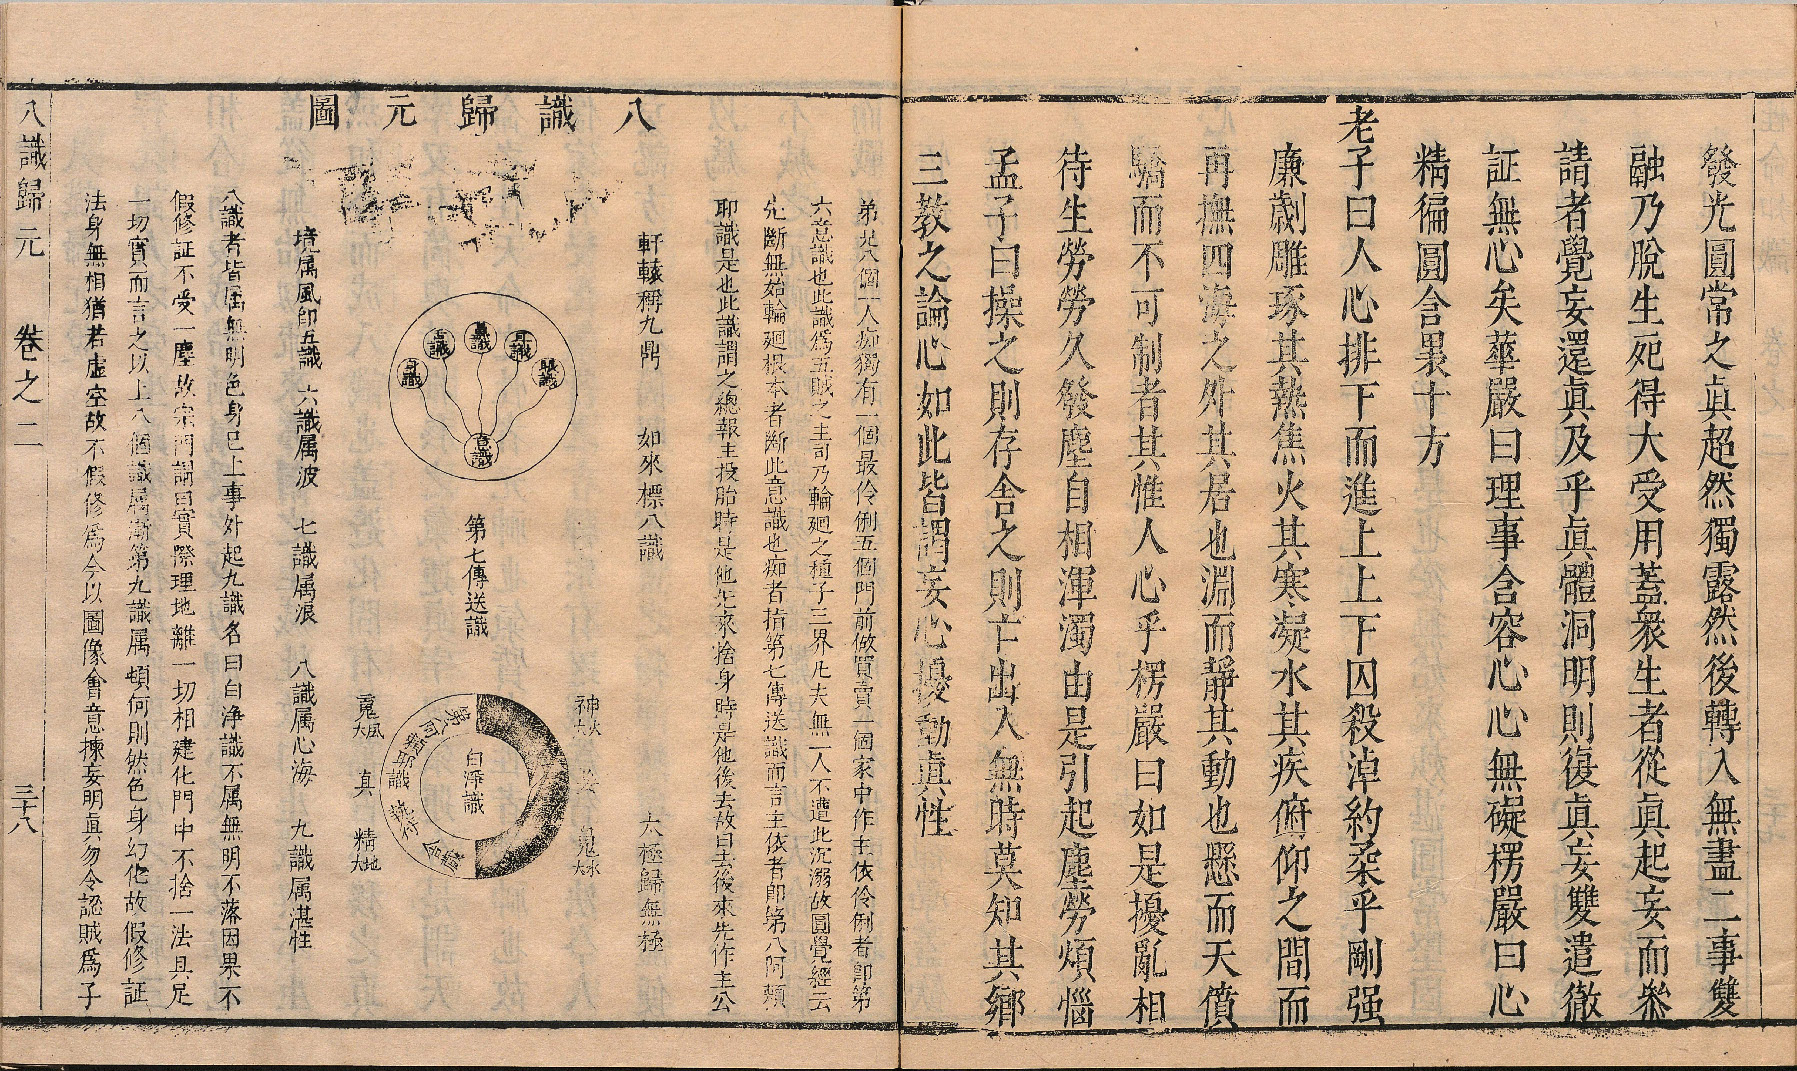 發光圓常之眞超然獨露然後轉入無盡二事雙
融乃脫生死得大受用蓋衆生者從眞起妄而叅
請者覺妄還眞及乎眞體洞明則復眞妄雙遣徹
証無心矣華嚴曰理事含容心心無礙楞嚴曰心
精徧圓含裹十方
老子曰人心排下而進上上下囚殺淖約柔乎剛强
廉劌雕琢其熱焦火其寒凝水其疾俯仰之間而
再撫四海之外其居也淵而靜其動也懸而天僨
驕而不可制者其惟人心乎楞嚴曰如是擾亂相
待生勞勞久發塵自相渾濁由是引起塵勞煩惱
孟子曰操之則存舍之則亡出入無時莫知其鄉
三敎之論心如此皆謂妄心擾動眞性
八識歸元圖
弟兄八個一人痴獨有一個最伶俐五個門前做買賣一個家中作主依伶俐者卽第
六意識也此識爲五賊之主司乃輪廻之種子三界凡夫無一人不遭此沉溺故圓覺經云
先斷無始輪廻根本者斷此意識也痴者指第七傳送識而言主依者卽第八阿賴
耶識是也此識謂之總報主投胎時是他先來捨身時是他後去故曰去後來先作主公
軒轅稱九鼎
如來標八識
太極歸無極
眼識
耳識
鼻識
舌識
身識
意識
第七傳送識
神火大
鬼水大
白淨識
第八阿賴耶識
魂風大
真
精地大
境属風卽五識 六識属波 七識属浪 八識属心海 九識属湛性
八識者皆属無明色身已上事外起九識名曰白淨識不属無明不落因果不
假修証不受一塵故宗門謂曰實際理地離一切相建化門中不捨一法具足
一切實而言之以上八個識属漸第九識属頓何則然色身幻化故假修証
法身無相猶若虛空故不假修爲今以圖像會意揀妄明眞勿令認賊爲子
八識歸元 卷之二 三十八